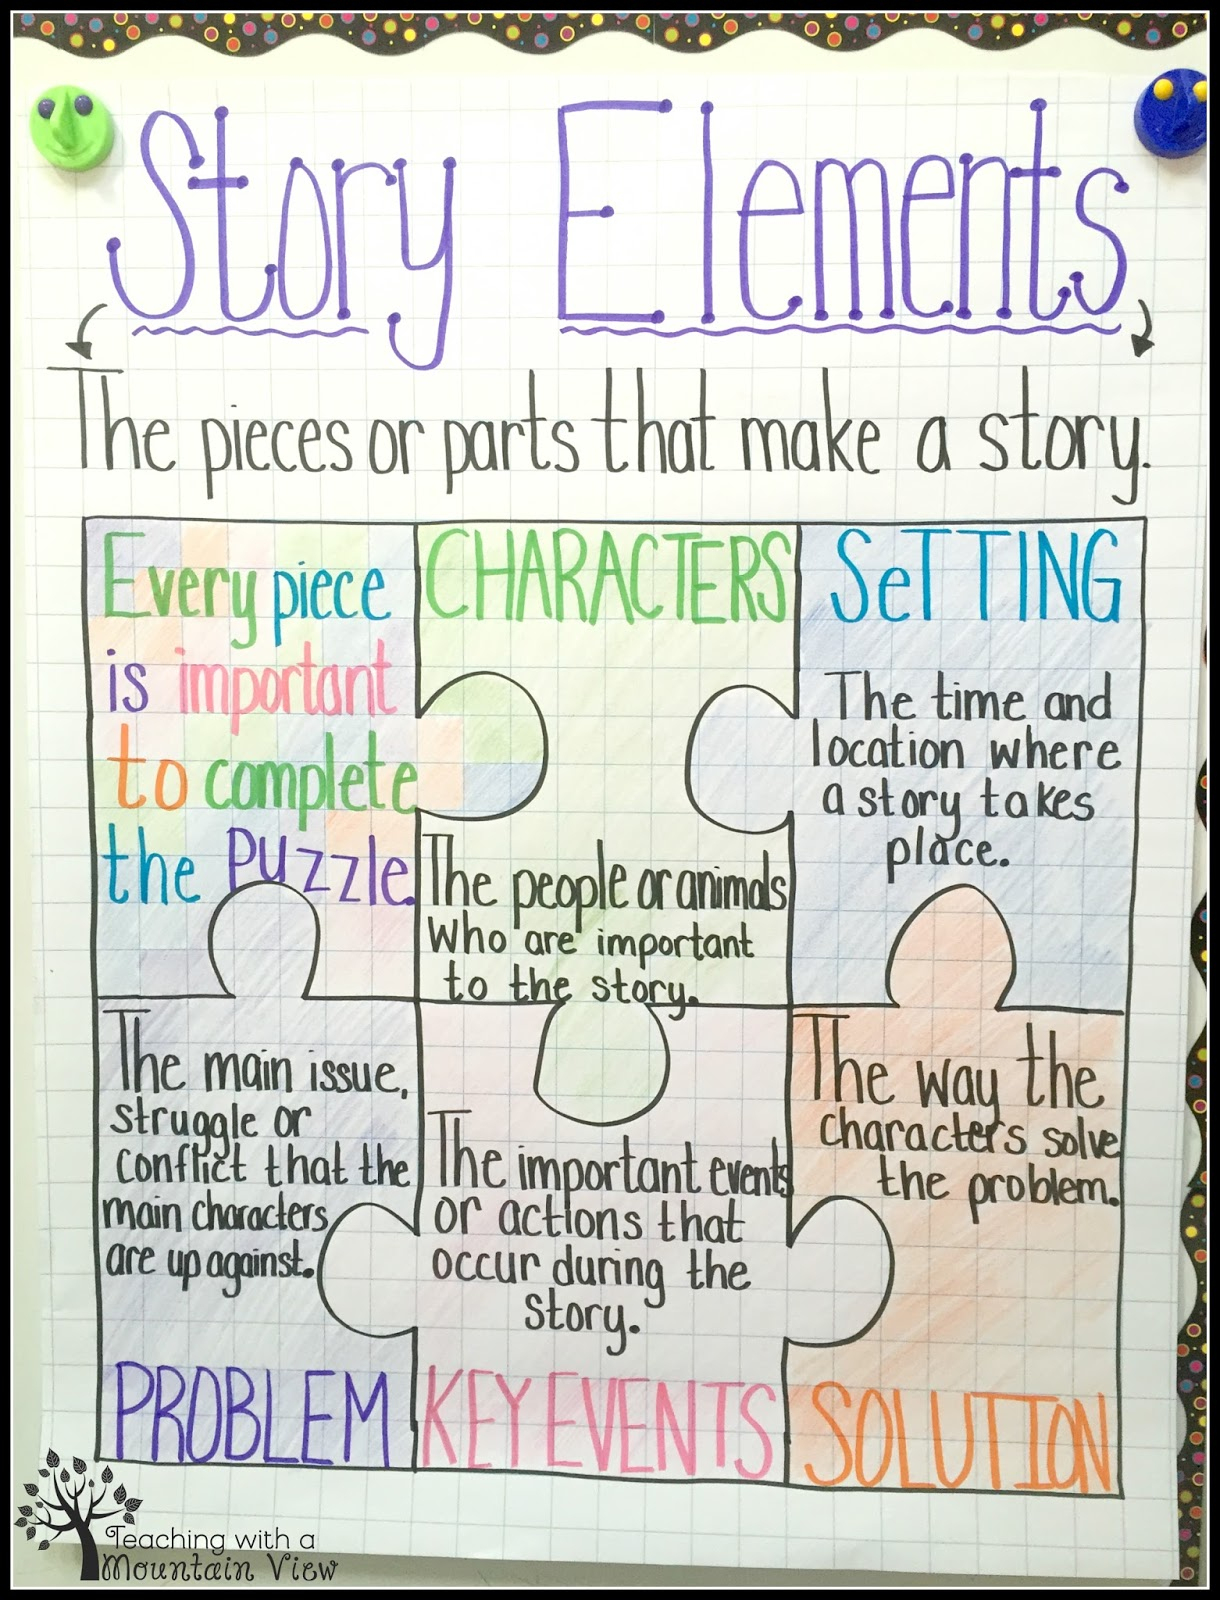 Story Elements
The pieces or parts that make a story.
Every piece
is important
to complete
the puzzle.
CHARACTERS
The people or animals
who are important
to the story.
SeTTING
The time and
location where
a story takes
place.
The main issue,
struggle or
conflict that the
main characters
are up against.
PROBLEM
The important events
or actions that
occur during the
story.
KEY EVENTS
The way the
characters solve
the problem.
SOLUTION
Teaching with a
Mountain View